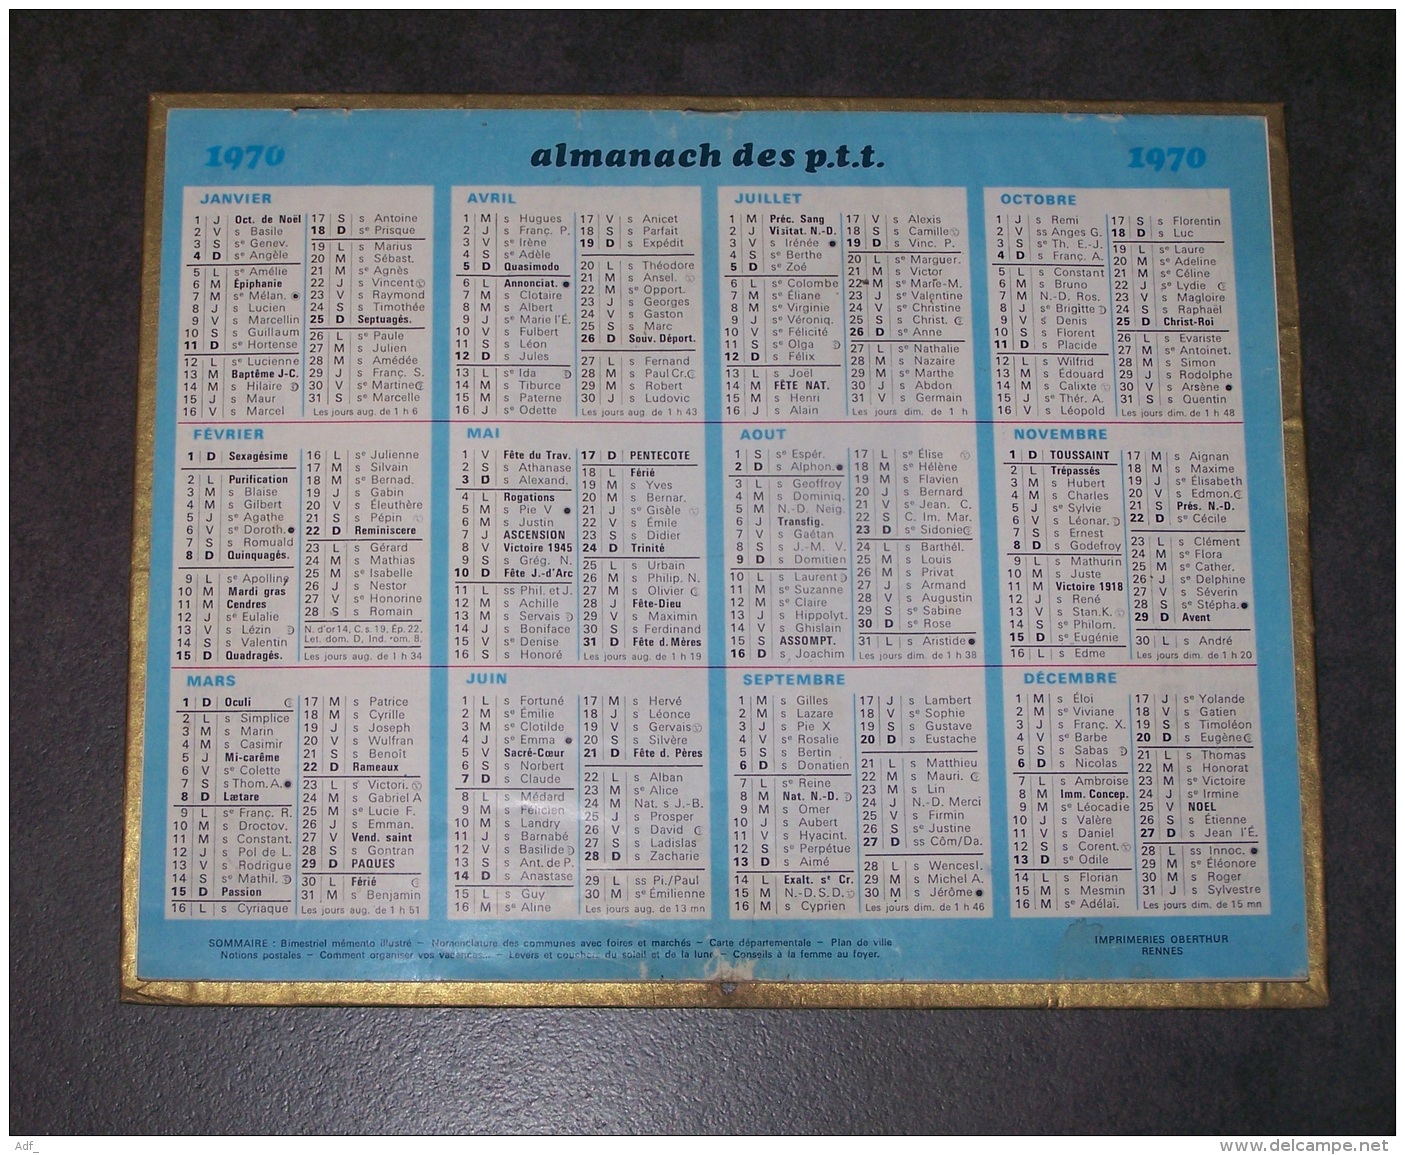 1970 almanach des p.t.t. 1970
JANVIER
1 J Oct. de Noël
2 V s Basile
3 S sᵉ Genev.
4 D sᵉ Angèle
5 L sᵉ Amélie
6 M Épiphanie
7 M sᵉ Mélan.
8 J s Lucien
9 V s Marcellin
10 S s Guillaum
11 D sᵉ Hortense
12 L sᵉ Lucienne
13 M Baptême J-C.
14 M s Hilaire
15 J s Maur
16 V s Marcel
17 S s Antoine
18 D sᵉ Prisque
19 L s Marius
20 M s Sébast.
21 M sᵉ Agnès
22 J s Vincent
23 V s Raymond
24 S s Timothée
25 D Septuagés.
26 L sᵉ Paule
27 M s Julien
28 M s Amédée
29 J s Franç. S.
30 V sᵉ Martine
31 S sᵉ Marcelle
Les jours aug. de 1 h 6
FÉVRIER
1 D Sexagésime
2 L Purification
3 M s Blaise
4 M s Gilbert
5 J sᵉ Agathe
6 V sᵉ Doroth.
7 S s Romuald
8 D Quinquagés.
9 L sᵉ Apolliny
10 M Mardi gras
11 M Cendres
12 J sᵉ Eulalie
13 V s Lézin
14 S s Valentin
15 D Quadragés.
16 L sᵉ Julienne
17 M s Silvain
18 M sᵉ Bernad.
19 J s Gabin
20 V s Éleuthère
21 S s Pépin
22 D Reminiscere
23 L s Gérard
24 M s Mathias
25 M sᵉ Isabelle
26 J s Nestor
27 V sᵉ Honorine
28 S s Romain
N. d'or 14, C. s. 19, Ép. 22,
Let. dom. D, Ind. rom. 8.
Les jours aug. de 1 h 34
MARS
1 D Oculi
2 L s Simplice
3 M s Marin
4 M s Casimir
5 J Mi-carême
6 V sᵉ Colette
7 S s Thom. A.
8 D Lætare
9 L sᵉ Franç. R.
10 M s Droctov.
11 M s Constant.
12 J s Pol de L.
13 V s Rodrigue
14 S sᵉ Mathil.
15 D Passion
16 L s Cyriaque
17 M s Patrice
18 M s Cyrille
19 J s Joseph
20 V s Wulfran
21 S s Benoît
22 D Rameaux
23 L s Victori.
24 M s Gabriel A
25 M s Lucie F.
26 J s Emman.
27 V Vend. saint
28 S s Gontran
29 D PAQUES
30 L Férié
31 M s Benjamin
Les jours aug. de 1 h 51
AVRIL
1 M s Hugues
2 J s Franç. P.
3 V sᵉ Irène
4 S sᵉ Adèle
5 D Quasimodo
6 L Annonciat.
7 M s Clotaire
8 M s Albert
9 J sᵉ Marie l'É.
10 V s Fulbert
11 S s Léon
12 D s Jules
13 L sᵉ Ida
14 M s Tiburce
15 M s Paterne
16 J sᵉ Odette
17 V s Anicet
18 S s Parfait
19 D s Expédit
20 L s Théodore
21 M s Ansel.
22 M sᵉ Opport.
23 J s Georges
24 V s Gaston
25 S s Marc
26 D Souv. Déport.
27 L s Fernand
28 M s Paul Cr.
29 M s Robert
30 J s Ludovic
Les jours aug. de 1 h 43
MAI
1 V Fête du Trav.
2 S s Athanase
3 D s Alexand.
4 L Rogations
5 M s Pie V
6 M s Justin
7 J ASCENSION
8 V Victoire 1945
9 S s Grég. N.
10 D Fête J.-d'Arc
11 L ss Phil. et J.
12 M s Achille
13 M s Servais
14 J s Boniface
15 V sᵉ Denise
16 S s Honoré
17 D PENTECOTE
18 L Férié
19 M s Yves
20 M s Bernar.
21 J sᵉ Gisèle
22 V s Émile
23 S s Didier
24 D Trinité
25 L s Urbain
26 M s Philip. N.
27 M s Olivier
28 J Fête-Dieu
29 V s Maximin
30 S s Ferdinand
31 D Fête d. Mères
Les jours aug. de 1 h 19
JUIN
1 L s Fortuné
2 M sᵉ Émilie
3 M sᵉ Clotilde
4 J sᵉ Emma
5 V Sacré-Cœur
6 S s Norbert
7 D s Claude
8 L s Médard
9 M s Félicien
10 M s Landry
11 J s Barnabé
12 V s Basilide
13 S s Ant. de P.
14 D s Anastase
15 L s Guy
16 M sᵉ Aline
17 M s Hervé
18 J s Léonce
19 V s Gervais
20 S s Silvère
21 D Fête d. Pères
22 L s Alban
23 M sᵉ Alice
24 M Nat. s J.-B.
25 J s Prosper
26 V s David
27 S s Ladislas
28 D s Zacharie
29 L ss Pi./Paul
30 M sᵉ Émilienne
Les jours aug. de 13 mn
JUILLET
1 M Préc. Sang
2 J Visitat. N.-D.
3 V s Irénée
4 S sᵉ Berthe
5 D sᵉ Zoé
6 L sᵉ Colombe
7 M sᵉ Éliane
8 M sᵉ Virginie
9 J sᵉ Véroniq.
10 V sᵉ Félicité
11 S sᵉ Olga
12 D s Félix
13 L s Joël
14 M FÊTE NAT.
15 M s Henri
16 J s Alain
17 V s Alexis
18 S s Camille
19 D s Vinc. P.
20 L sᵉ Marguer.
21 M s Victor
22 M sᵉ Marie-M.
23 J s Valentine
24 V sᵉ Christine
25 S s Christ.
26 D sᵉ Anne
27 L sᵉ Nathalie
28 M s Nazaire
29 M sᵉ Marthe
30 J s Abdon
31 V s Germain
Les jours dim. de 1 h
AOUT
1 S sᵉ Espér.
2 D s Alphon.
3 L s Geoffroy
4 M s Dominiq.
5 M N.-D. Neig.
6 J Transfig.
7 V s Gaétan
8 S s J.-M. V.
9 D s Domitien
10 L s Laurent
11 M sᵉ Suzanne
12 M sᵉ Claire
13 J s Hippolyt.
14 V s Ghislain
15 S ASSOMPT.
16 D s Joachim
17 L sᵉ Élise
18 M sᵉ Hélène
19 M s Flavien
20 J s Bernard
21 V sᵉ Jean. C.
22 S C. Im. Mar.
23 D sᵉ Sidonie
24 L s Barthél.
25 M s Louis
26 M s Privat
27 J s Armand
28 V s Augustin
29 S sᵉ Sabine
30 D sᵉ Rose
31 L s Aristide
Les jours dim. de 1 h 38
SEPTEMBRE
1 M s Gilles
2 M s Lazare
3 J s Pie X
4 V sᵉ Rosalie
5 S s Bertin
6 D s Donatien
7 L sᵉ Reine
8 M Nat. N.-D.
9 M s Omer
10 J s Aubert
11 V s Hyacint.
12 S sᵉ Perpétue
13 D s Aimé
14 L Exalt. sᵉ Cr.
15 M N.-D.S.D.
16 M s Cyprien
17 J s Lambert
18 V sᵉ Sophie
19 S s Gustave
20 D s Eustache
21 L s Matthieu
22 M s Mauri.
23 M s Lin
24 J N.-D. Merci
25 V s Firmin
26 S sᵉ Justine
27 D ss Côm/Da.
28 L s Wencesl.
29 M s Michel A.
30 M s Jérôme
Les jours dim. de 1 h 46
OCTOBRE
1 J s Remi
2 V ss Anges G.
3 S sᵉ Th. E.-J.
4 D s Franç. A.
5 L s Constant
6 M s Bruno
7 M N.-D. Ros.
8 J sᵉ Brigitte
9 V s Denis
10 S s Florent
11 D s Placide
12 L s Wilfrid
13 M s Édouard
14 M s Calixte
15 J sᵉ Thér. A.
16 V s Léopold
17 S s Florentin
18 D s Luc
19 L sᵉ Laure
20 M sᵉ Adeline
21 M sᵉ Céline
22 J sᵉ Lydie
23 V s Magloire
24 S s Raphael
25 D Christ-Roi
26 L s Evariste
27 M sᵉ Antoinet.
28 M s Simon
29 J s Rodolphe
30 V s Arsène
31 S s Quentin
Les jours dim. de 1 h 48
NOVEMBRE
1 D TOUSSAINT
2 L Trépassés
3 M s Hubert
4 M s Charles
5 J sᵉ Sylvie
6 V s Léonar.
7 S s Ernest
8 D s Godefroy
9 L s Mathurin
10 M s Juste
11 M Victoire 1918
12 J s René
13 V s Stan.K.
14 S sᵉ Philom.
15 D sᵉ Eugénie
16 L s Edme
17 M s Aignan
18 M s Maxime
19 J sᵉ Élisabeth
20 V s Edmon.
21 S Prés. N.-D.
22 D sᵉ Cécile
23 L s Clément
24 M sᵉ Flora
25 M sᵉ Cather.
26 J sᵉ Delphine
27 V s Séverin
28 S sᵉ Stépha.
29 D Avent
30 L s André
Les jours dim. de 1 h 20
DÉCEMBRE
1 M s Éloi
2 M sᵉ Viviane
3 J s Franç. X.
4 V sᵉ Barbe
5 S s Sabas
6 D s Nicolas
7 L s Ambroise
8 M Imm. Concep.
9 M sᵉ Léocadie
10 J s Valère
11 V s Daniel
12 S sᵉ Corent.
13 D sᵉ Odile
14 L s Florian
15 M s Mesmin
16 M sᵉ Adélaï.
17 J sᵉ Yolande
18 V s Gatien
19 S s Timoléon
20 D s Eugène
21 L s Thomas
22 M s Honorat
23 M sᵉ Victoire
24 J sᵉ Irmine
25 V NOEL
26 S s Étienne
27 D s Jean l'É.
28 L ss Innoc.
29 M sᵉ Éléonore
30 M s Roger
31 J s Sylvestre
Les jours dim. de 15 mn
SOMMAIRE : Bimestriel mémento illustré – Nomenclature des communes avec foires et marchés – Carte départementale – Plan de ville
Notions postales – Comment organiser vos vacances... – Levers et couchers du soleil et de la lune – Conseils à la femme au foyer.
IMPRIMERIES OBERTHUR
RENNES
Adf_
www.delcampe.net